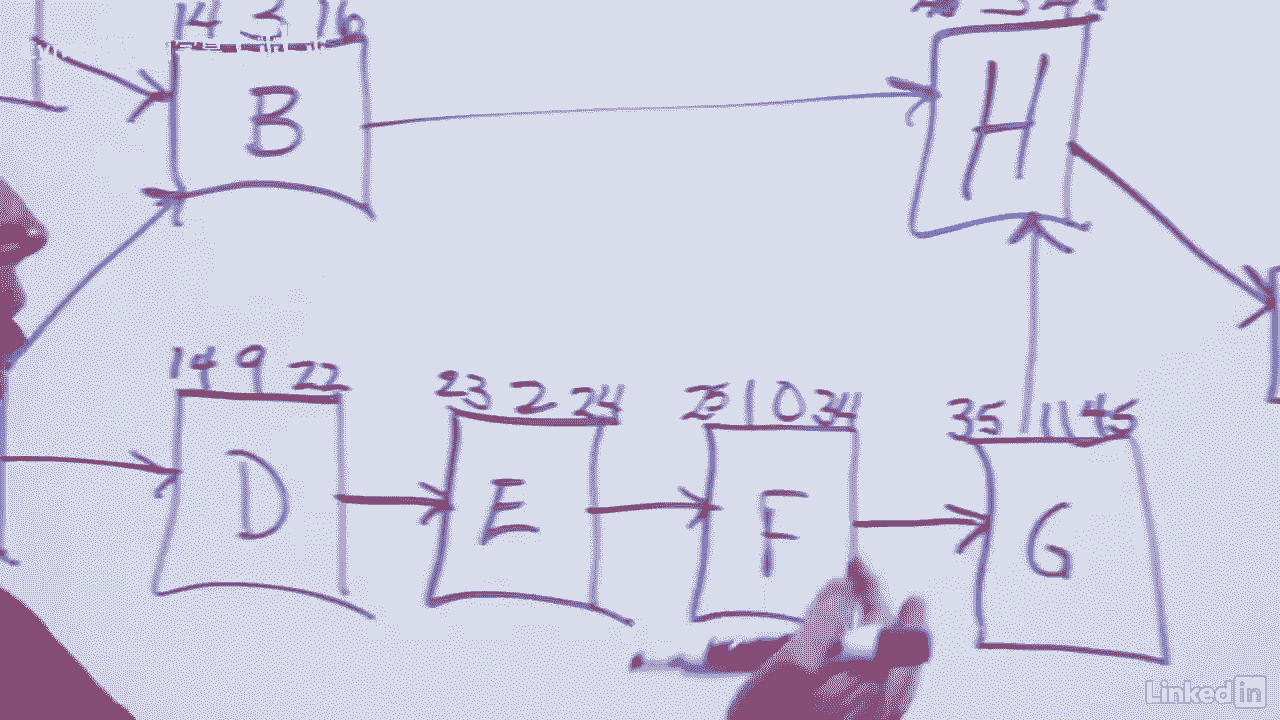 14 3 16
B
H
14 9 22
23 2 24
25 10 34
35 11 45
D
E
F
G
Linked in